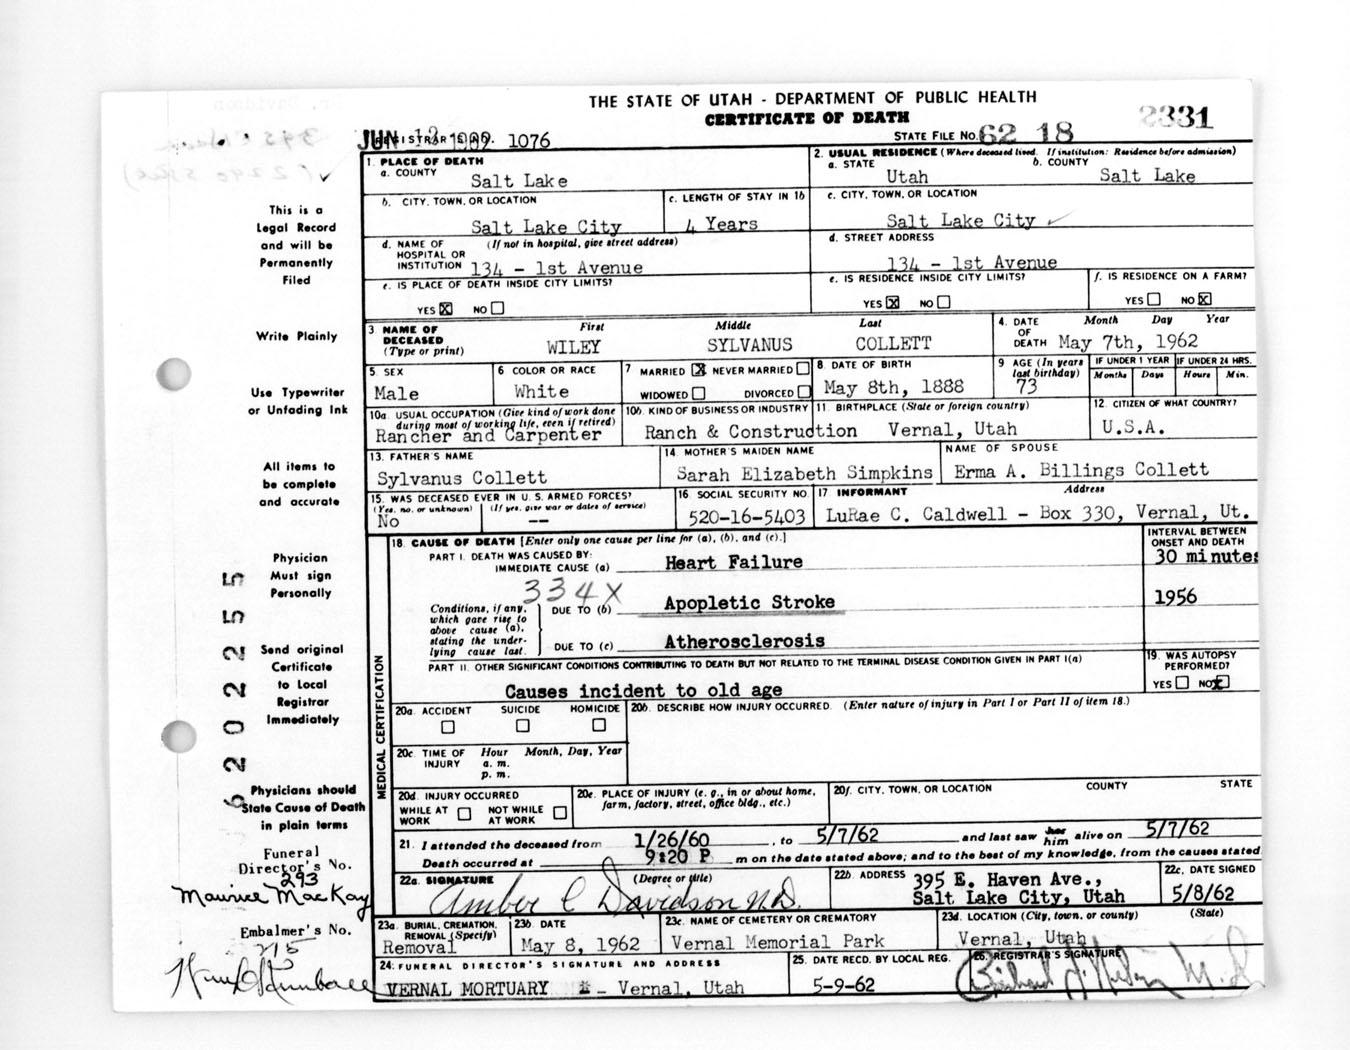 THE STATE OF UTAH - DEPARTMENT OF PUBLIC HEALTH
CERTIFICATE OF DEATH
2331
REGISTRAR'S NO. 1076
STATE FILE NO. 62 18
1. PLACE OF DEATH
a. COUNTY Salt Lake
2. USUAL RESIDENCE (Where deceased lived. If institution: Residence before admission)
a. STATE Utah b. COUNTY Salt Lake
b. CITY, TOWN, OR LOCATION Salt Lake City
c. LENGTH OF STAY IN 1b 4 Years
c. CITY, TOWN, OR LOCATION Salt Lake City
d. NAME OF HOSPITAL OR INSTITUTION (If not in hospital, give street address) 134 - 1st Avenue
d. STREET ADDRESS 134 - 1st Avenue
e. IS PLACE OF DEATH INSIDE CITY LIMITS?
YES X NO
e. IS RESIDENCE INSIDE CITY LIMITS?
YES X NO
f. IS RESIDENCE ON A FARM?
YES NO X
3 NAME OF DECEASED (Type or print)
First Middle Last
WILEY SYLVANUS COLLETT
4. DATE OF DEATH Month Day Year
May 7th, 1962
5. SEX Male
6 COLOR OR RACE White
7 MARRIED X NEVER MARRIED
WIDOWED DIVORCED
8. DATE OF BIRTH May 8th, 1888
9 AGE (In years last birthday) 73
IF UNDER 1 YEAR Months Days
IF UNDER 24 HRS. Hours Min.
10a. USUAL OCCUPATION (Give kind of work done during most of working life, even if retired)
Rancher and Carpenter
10b. KIND OF BUSINESS OR INDUSTRY
Ranch & Construction
11. BIRTHPLACE (State or foreign country)
Vernal, Utah
12. CITIZEN OF WHAT COUNTRY?
U.S.A.
13. FATHER'S NAME
Sylvanus Collett
14. MOTHER'S MAIDEN NAME
Sarah Elizabeth Simpkins
NAME OF SPOUSE
Erma A. Billings Collett
15. WAS DECEASED EVER IN U. S. ARMED FORCES?
(Yes, no, or unknown) (If yes, give war or dates of service)
No --
16 SOCIAL SECURITY NO.
520-16-5403
17 INFORMANT Address
LuRae C. Caldwell - Box 330, Vernal, Ut.
MEDICAL CERTIFICATION
18. CAUSE OF DEATH [Enter only one cause per line for (a), (b), and (c).]
INTERVAL BETWEEN ONSET AND DEATH
PART I. DEATH WAS CAUSED BY:
IMMEDIATE CAUSE (a) Heart Failure 30 minutes
334X
Conditions, if any, which gave rise to above cause (a), stating the underlying cause last.
DUE TO (b) Apopletic Stroke 1956
DUE TO (c) Atherosclerosis
PART II. OTHER SIGNIFICANT CONDITIONS CONTRIBUTING TO DEATH BUT NOT RELATED TO THE TERMINAL DISEASE CONDITION GIVEN IN PART I(a)
Causes incident to old age
19. WAS AUTOPSY PERFORMED?
YES NO X
20a. ACCIDENT SUICIDE HOMICIDE
20b. DESCRIBE HOW INJURY OCCURRED. (Enter nature of injury in Part I or Part II of item 18.)
20c. TIME OF INJURY Hour Month, Day, Year
a. m.
p. m.
20d. INJURY OCCURRED
WHILE AT WORK NOT WHILE AT WORK
20e. PLACE OF INJURY (e. g., in or about home, farm, factory, street, office bldg., etc.)
20f. CITY, TOWN, OR LOCATION COUNTY STATE
21. I attended the deceased from 1/26/60, to 5/7/62 and last saw him alive on 5/7/62
Death occurred at 9:20 P m on the date stated above; and to the best of my knowledge, from the causes stated
22a. SIGNATURE (Degree or title)
Amber C Davidson M.D.
22b ADDRESS 395 E. Haven Ave.,
Salt Lake City, Utah
22c. DATE SIGNED
5/8/62
23a. BURIAL, CREMATION, REMOVAL (Specify)
Removal
23b. DATE
May 8, 1962
23c. NAME OF CEMETERY OR CREMATORY
Vernal Memorial Park
23d. LOCATION (City, town, or county) (State)
Vernal, Utah
24. FUNERAL DIRECTOR'S SIGNATURE AND ADDRESS
VERNAL MORTUARY - Vernal, Utah
25. DATE RECD. BY LOCAL REG.
5-9-62
26. REGISTRAR'S SIGNATURE
This is a
Legal Record
and will be
Permanently
Filed
Write Plainly
Use Typewriter
or Unfading Ink
All items to
be complete
and accurate
Physician
Must sign
Personally
Send original
Certificate
to Local
Registrar
Immediately
Physicians should
State Cause of Death
in plain terms
62022255
Funeral
Director's No.
293
Maurice MacKay
Embalmer's No.
215